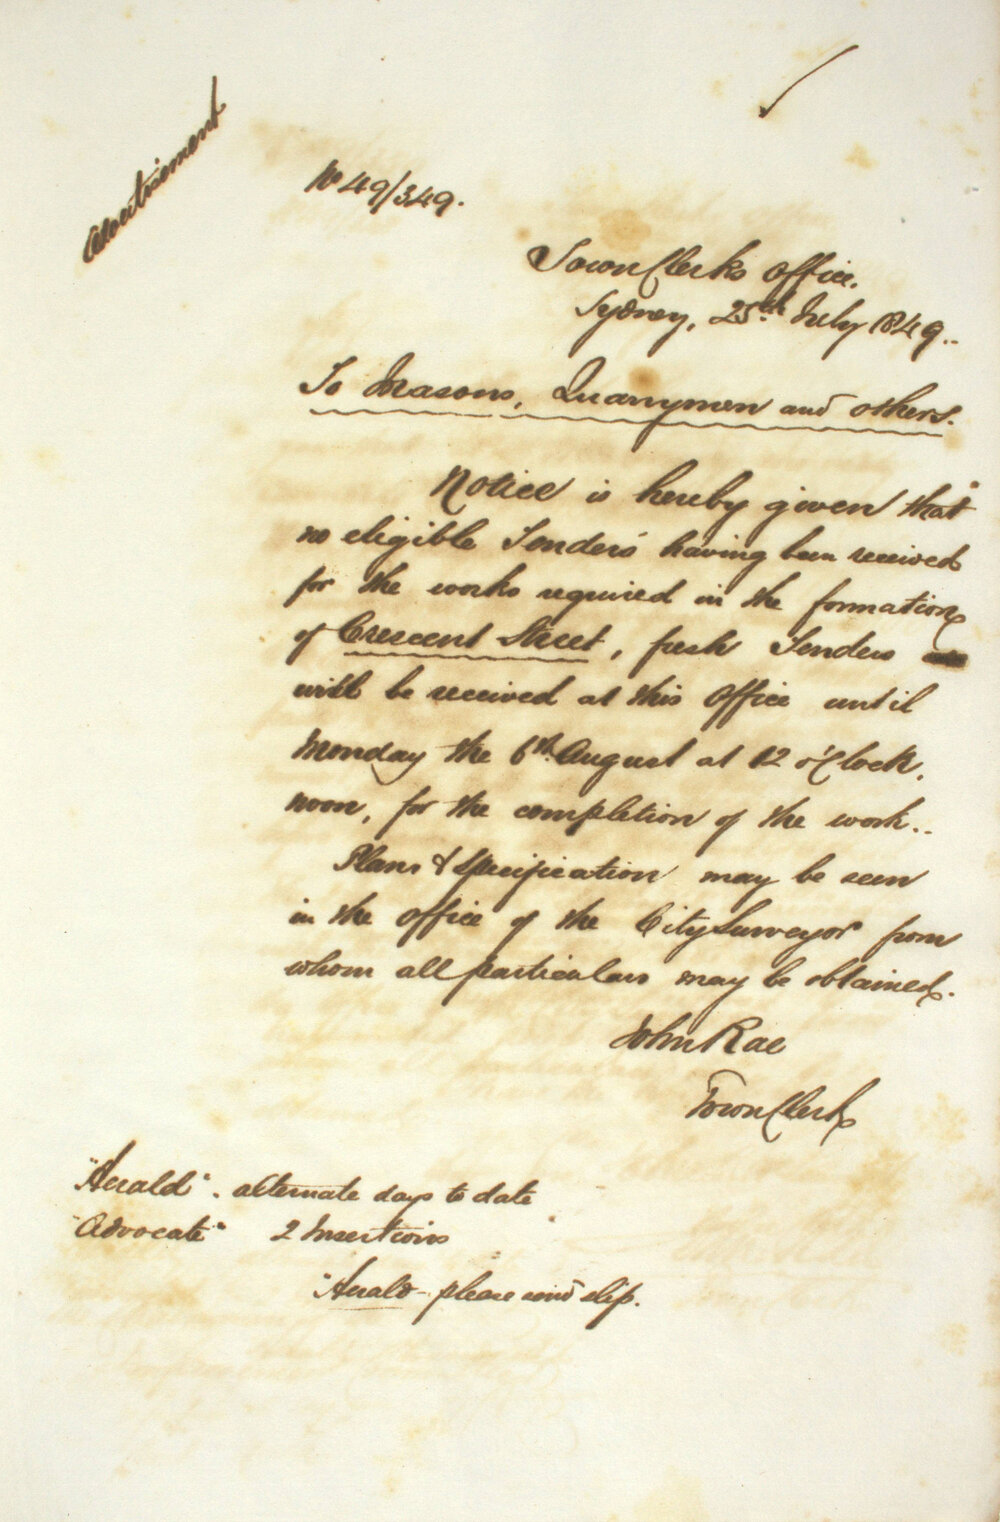 Advertisement
No 49/349.
Town Clerks Office.
Sydney, 25th July 1849..
To Masons, Quarrymen and others.
Notice is hereby given that
no eligible Tenders having been received
for the works required in the formation
of Crescent Street, fresh Tenders
will be received at this Office until
Monday the 6th August at 12 o'Clock,
noon, for the completion of the work..
Plans & Specification may be seen
in the office of the City Surveyor from
whom all particulars may be obtained.
John Rae
Town Clerk
"Herald". alternate days to date
"Advocate" 2 Insertions
"Herald - please send slip.